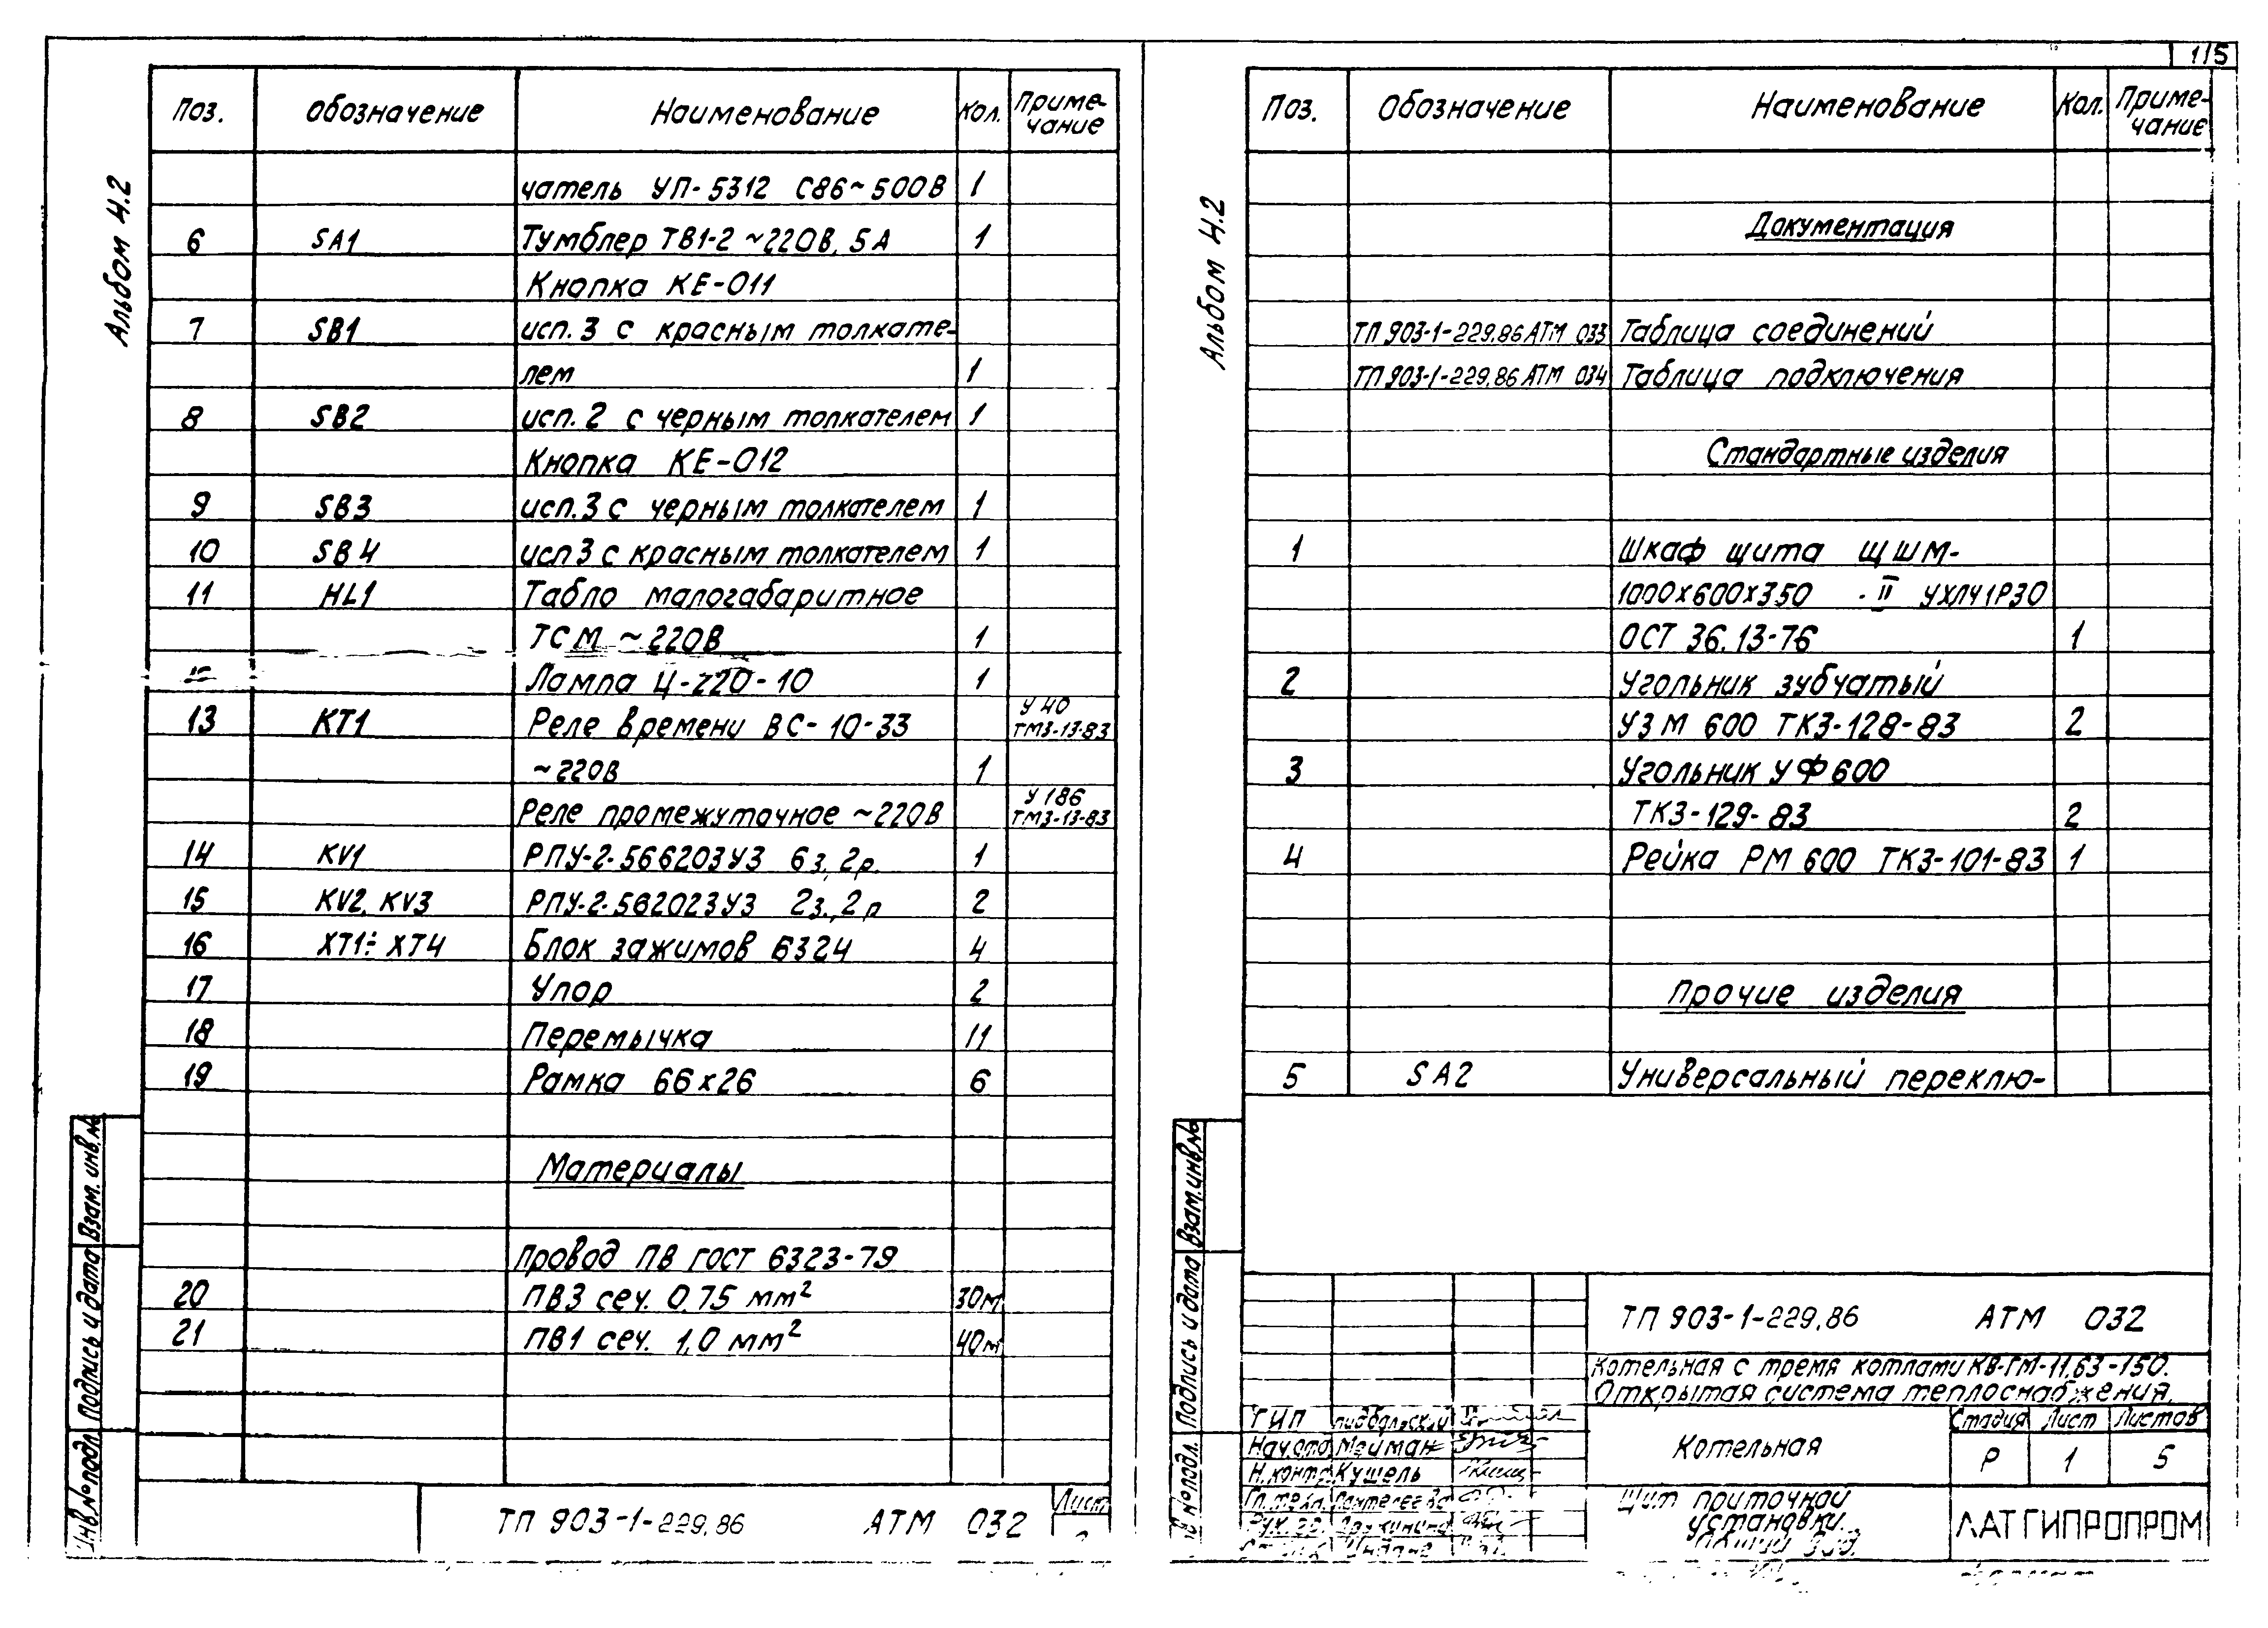 Альбом 4.2
Поз. Обозначение Наименование Кол. Приме-
чание
чатель УП-5312 С86~500В 1
6 SA1 Тумблер ТВ1-2 ~220В, 5А 1
Кнопка КЕ-011
7 SB1 исп. 3 с красным толкате-
лем 1
8 SB2 исп. 2 с черным толкателем 1
Кнопка КЕ-012
9 SB3 исп. 3 с черным толкателем 1
10 SB4 исп 3 с красным толкателем 1
11 HL1 Табло малогабаритное
ТСМ ~220В 1
Лампа Ц-220-10 1
13 КТ1 Реле времени ВС-10-33 У 40
ТМ3-13-83
~220В 1
Реле промежуточное ~220В У 186
ТМ3-13-83
14 KV1 РПУ-2-566203У3 6з, 2р. 1
15 KV2, KV3 РПУ-2-562023У3 2з., 2р 2
16 ХТ1÷ХТ4 Блок зажимов Б324 4
17 Упор 2
18 Перемычка 11
19 Рамка 66х26 6
Материалы
Провод ПВ ГОСТ 6323-79
20 ПВ3 сеч. 0,75 мм² 30м
21 ПВ1 сеч. 1,0 мм² 40м
Взам. инв.№
Подпись и дата
Инв.№ подл.
ТП 903-1-229.86 АТМ 032
Лист
1/5
Альбом 4.2
Поз. Обозначение Наименование Кол. Приме-
чание
Документация
ТП 903-1-229.86 АТМ 033 Таблица соединений
ТП 903-1-229.86 АТМ 034 Таблица подключения
Стандартные изделия
1 Шкаф щита ЩШМ-
1000х600х350 -II УХЛЧ1Р30
ОСТ 36.13-76 1
2 Угольник зубчатый
УЗМ 600 ТК3-128-83 2
3 Угольник УФ600
ТК3-129-83 2
4 Рейка РМ 600 ТК3-101-83 1
Прочие изделия
5 SA2 Универсальный переклю-
Взам.инв.№
Подпись и дата
№ подл.
ТП 903-1-229.86 АТМ 032
Котельная с тремя котлами КВ-ГМ-11,63-150.
Открытая система теплоснабжения.
ГИП
Нач.отд Мейман
Н.контр. Кушель
Гл.техн. Пантелеева
Рук. гр.
Котельная
Стадия Лист Листов
Р 1 5
Щит приточной
установки.
Общий вид.
ЛАТГИПРОПРОМ